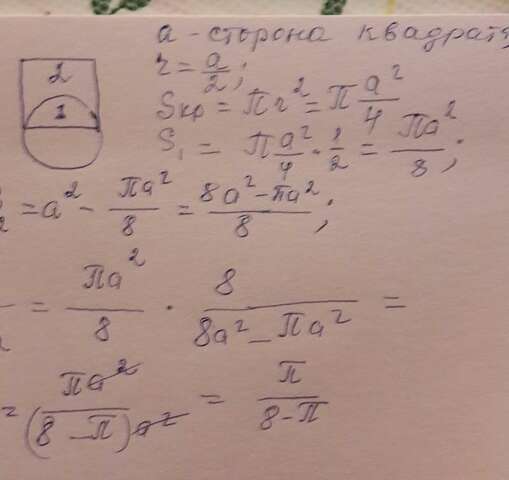 a - сторона квадрата
r = a/2;
2
1
Sкр = πr² = π a²/4
S₁ = π a²/4 · 1/2 = πa²/8;
2 = a² - πa²/8 = (8a² - πa²)/8;
= πa²/8 · 8/(8a² - πa²) =
= πa²/((8 - π)a²) = π/(8 - π)